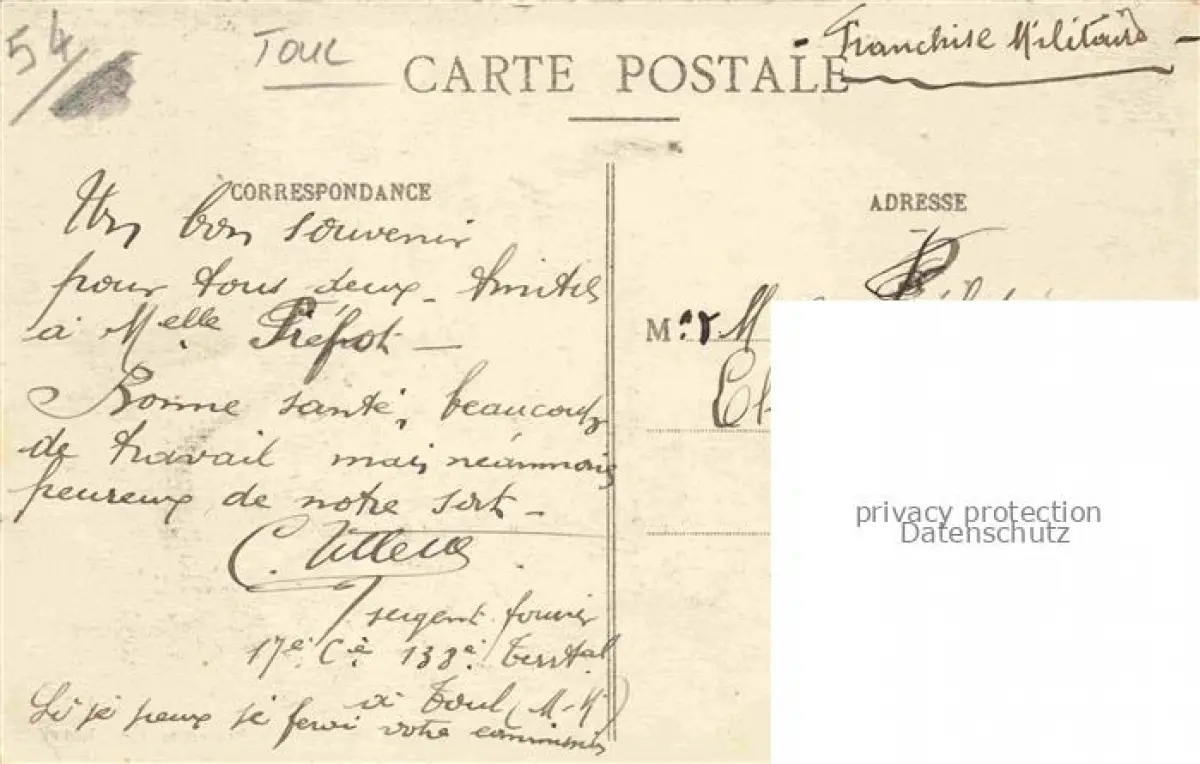 54
TOUL
CARTE POSTALE
Franchise Militaire
CORRESPONDANCE
Un bon souvenir
pour tous deux - Amitiés
à Melle
Bonne santé, beaucoup
de travail mais néanmoins
heureux de notre sort -
C.
sergent fourrier
17e Cie 138e Territal
à Toul (M-
Si je peux je ferai votre commission
ADRESSE
M
privacy protection
Datenschutz